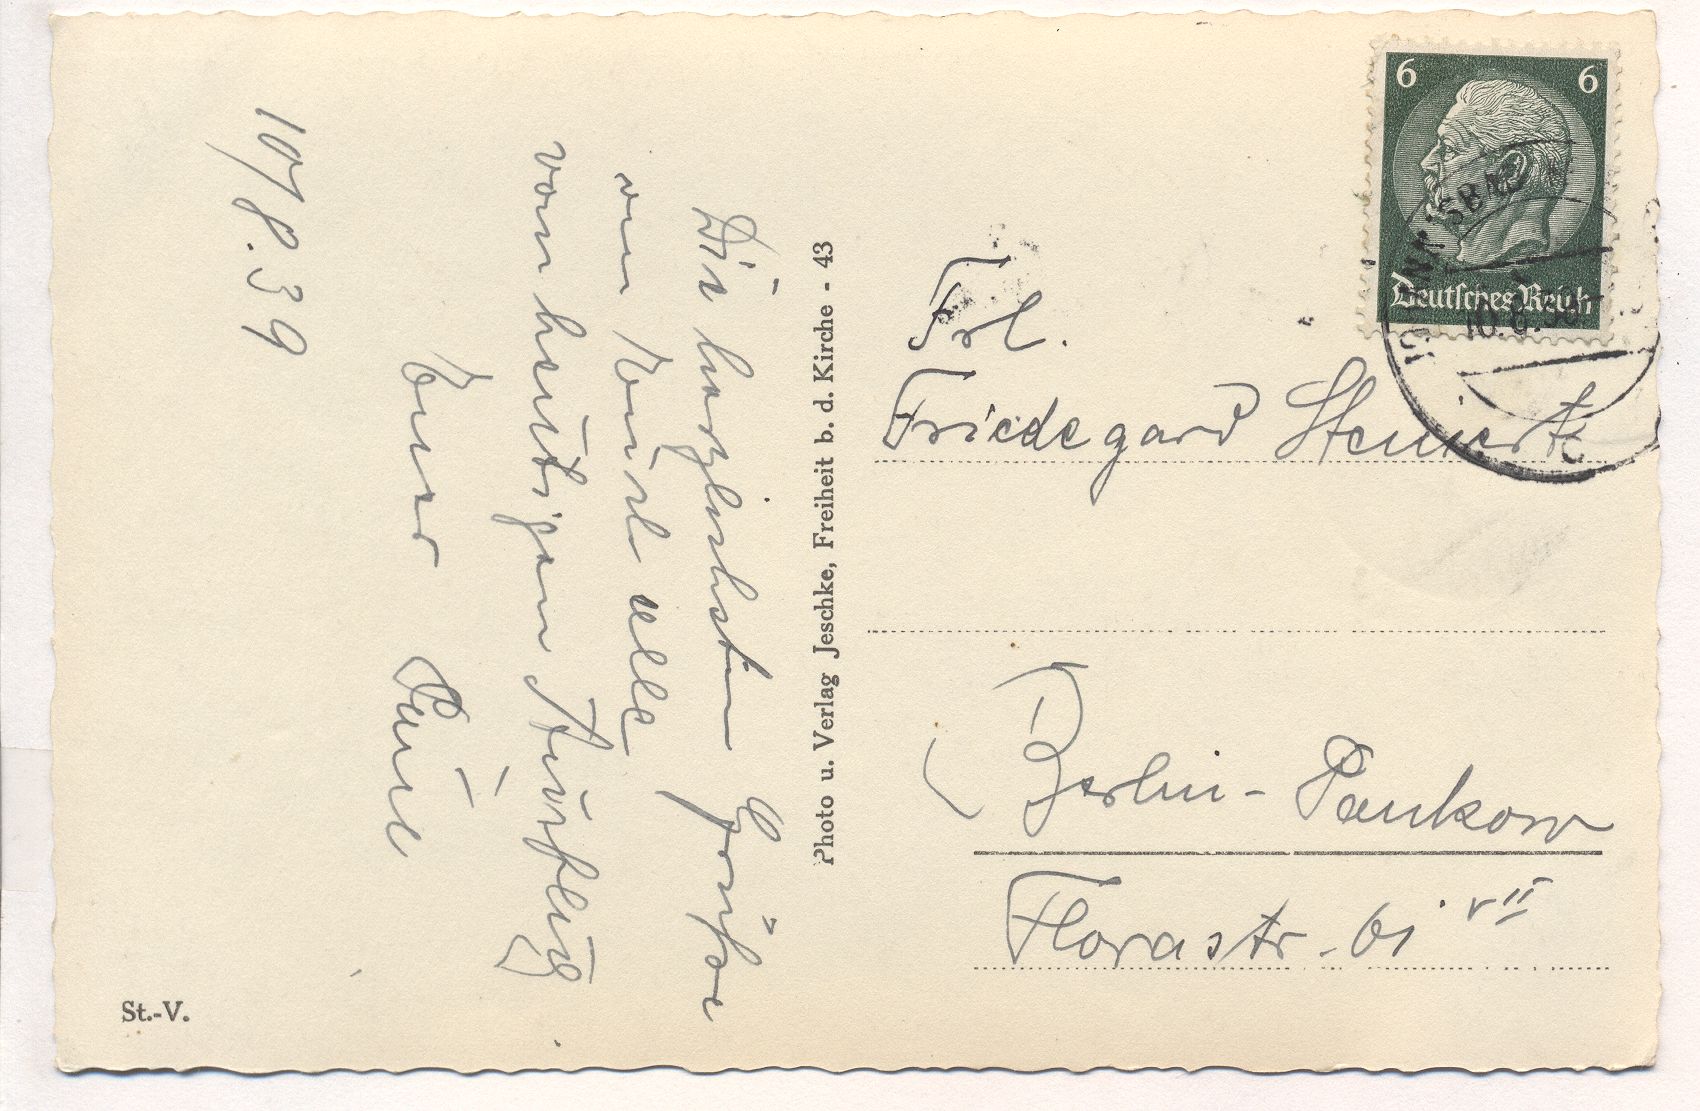 10/8.39
Die herzlichsten Grüße
an Euch alle
vom heutigen Ausflug
Euer Paul
Photo u. Verlag Jeschke, Freiheit b. d. Kirche - 43
St.-V.
6 6
Deutsches Reich
10.8.39
Frl.
Friedegard Steinert
Berlin-Pankow
Florastr. 61 v II